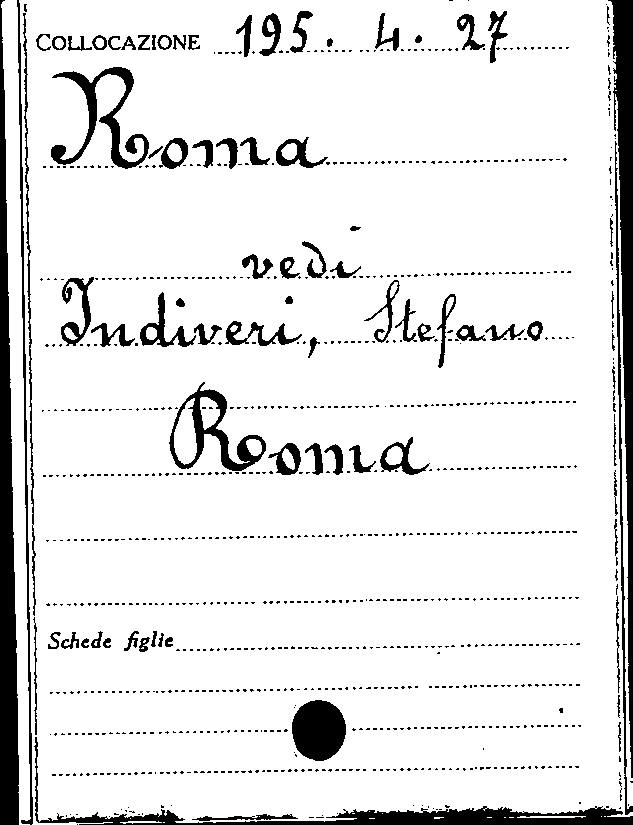 COLLOCAZIONE 195. 4. 27
Roma
vedi
Indiveri, Stefano
Roma
Schede figlie